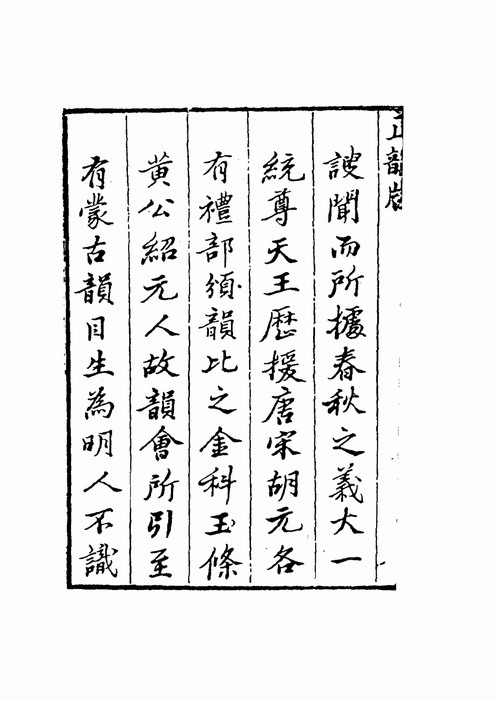 正韻牋
謏聞而所據春秋之義大一
統尊天王歷援唐宋胡元各
有禮部頒韻比之金科玉條
黄公紹元人故韻會所引至
有蒙古韻目生為明人不識